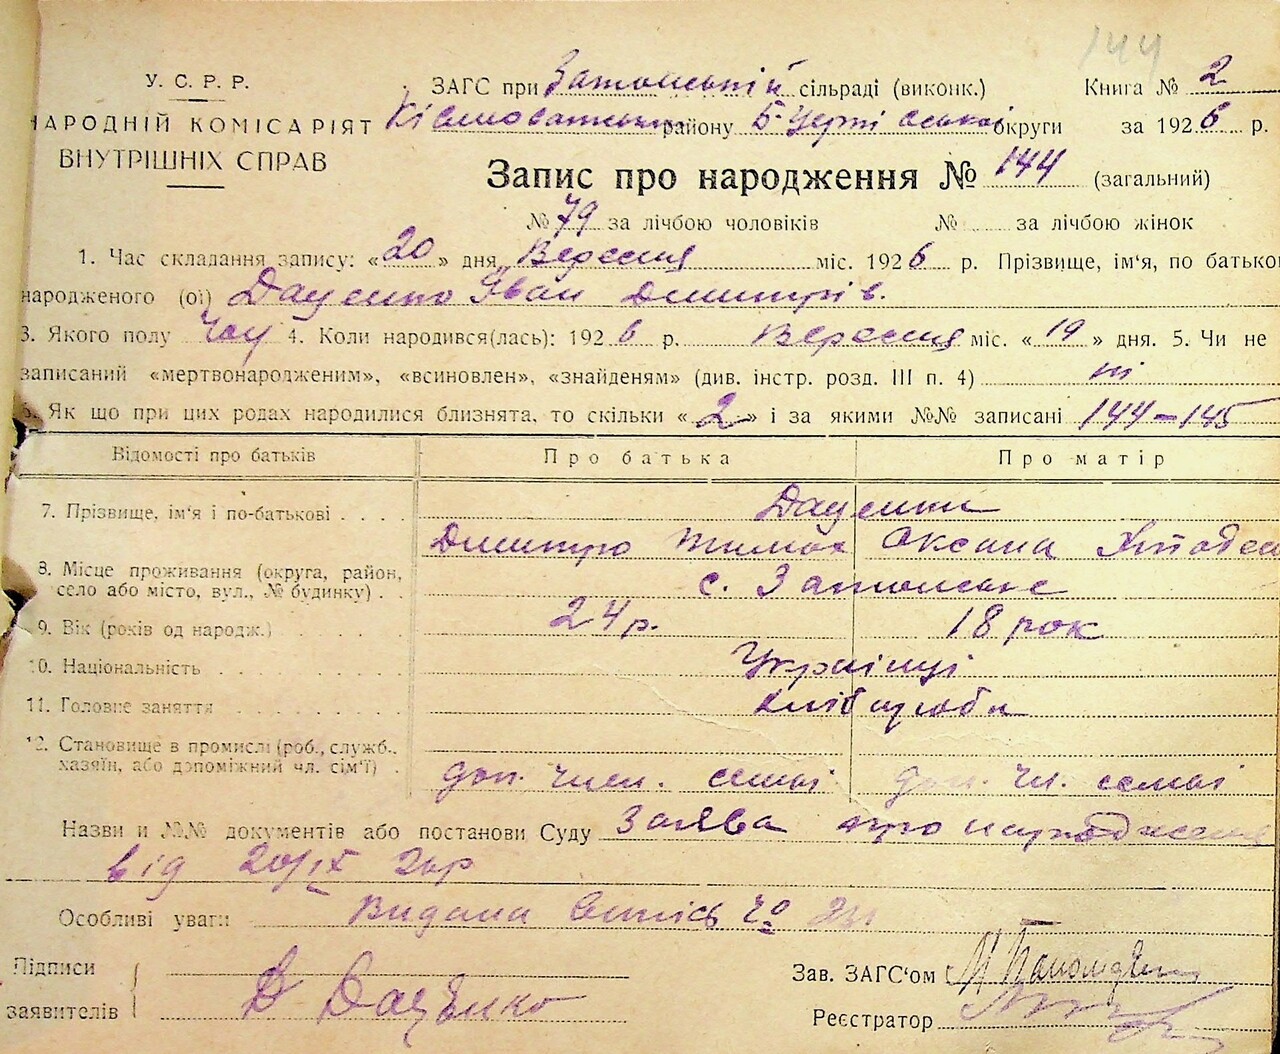 144
У. С. Р. Р.
НАРОДНІЙ КОМІСАРІЯТ
ВНУТРІШНІХ СПРАВ
ЗАГС при Затонській сільраді (виконк.)
району Б-Церківської округи
Книга № 2
за 1926 р.
Запис про народження № 144 (загальний)
№ 79 за лічбою чоловіків № за лічбою жінок
1. Час складання запису: «20» дня Вересня міс. 1926 р. Прізвище, ім'я, по батькові
народженого (ої) Даценко Іван Дмитрів.
3. Якого полу Чол 4. Коли народився(лась): 1926 р. Вересня міс. «19» дня. 5. Чи не
записаний «мертвонародженим», «всиновлен», «знайденям» (див. інстр. розд. III п. 4) ні
6. Як що при цих родах народилися близнята, то скільки «2» і за якими №№ записані 144-145
Відомості про батьків Про батька Про матір
7. Прізвище, ім'я і по-батькові . . . . Даценки
Дмитро Тимох Оксана
8. Місце проживання (округа, район,
село або місто, вул., № будинку) . . с. Затонське
9. Вік (років од народж.) 24 р. 18 рок
10. Національність Українці
11. Головне заняття Хліборобы
12. Становище в промислі (роб., служб.,
хазяїн, або допоміжний чл. сім'ї) . доп. член. семьі доп. чл. семьі
Назви и №№ документів або постанови Суду Заява про народження
від 20/IX 26 р
Особливі уваги Видана
Підписи
заявителів Д Даценко
Зав. ЗАГС'ом
Реєстратор